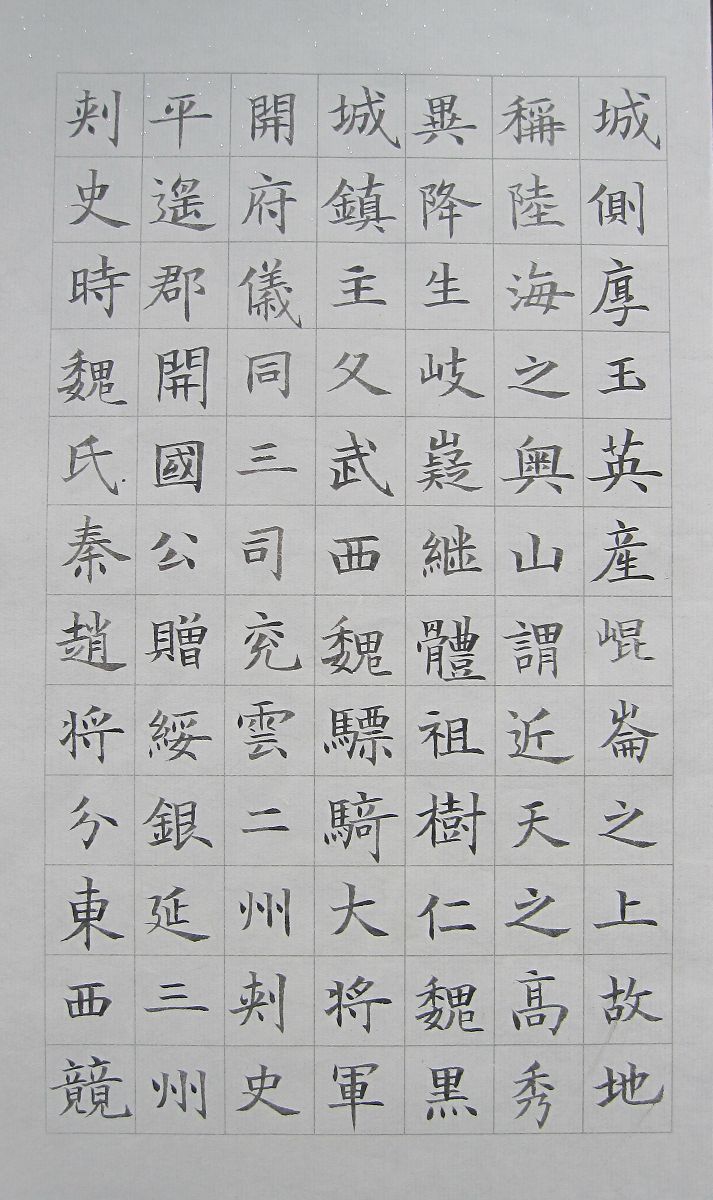 城側厚玉英産崐崙之上故地
稱陸海之奥山謂近天之髙秀
異降生岐嶷継體祖樹仁魏黒
城鎮主父武西魏驃騎大将軍
開府儀同三司兖雲二州刾史
平遥郡開國公贈綏銀延三州
刾史時魏氏秦趙将分東西競